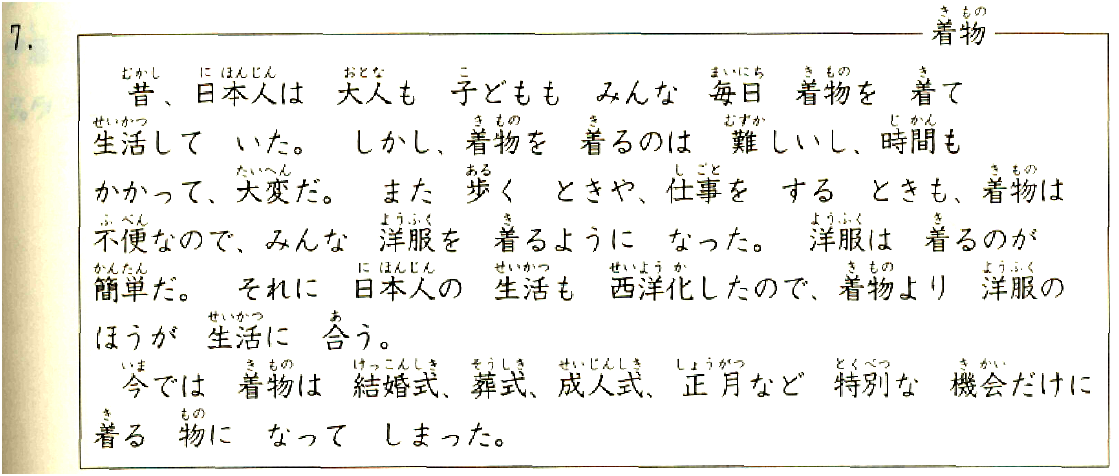 7.
着物
昔、日本人は 大人も 子どもも みんな 毎日 着物を 着て
生活して いた。 しかし、着物を 着るのは 難しいし、時間も
かかって、大変だ。 また 歩く ときや、仕事を する ときも、着物は
不便なので、みんな 洋服を 着るように なった。 洋服は 着るのが
簡単だ。 それに 日本人の 生活も 西洋化したので、着物より 洋服の
ほうが 生活に 合う。
今では 着物は 結婚式、葬式、成人式、正月など 特別な 機会だけに
着る 物に なって しまった。